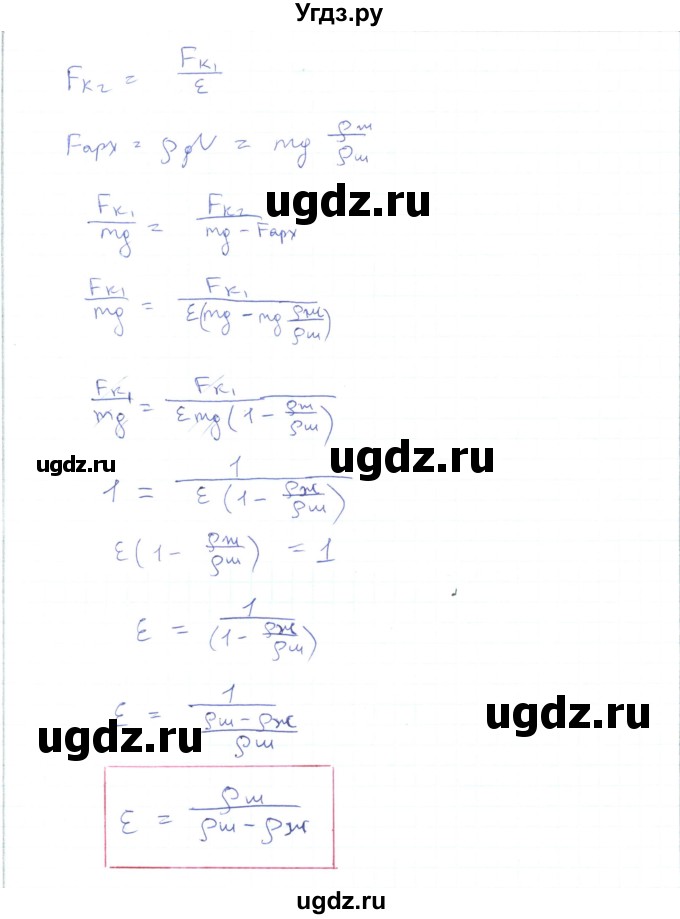 Угдз.ру
Fк₂ = Fк₁ / ε
Fарх = ρgV = mg ρж / ρш
Fк₁ / mg = Fк₂ / (mg - Fарх)
ugdz.ru
Fк₁ / mg = Fк₁ / (ε(mg - mg ρж / ρш))
Fк₁ / mg = Fк₁ / (εmg(1 - ρж / ρш))
ugdz.ru
ugdz.ru
1 = 1 / (ε(1 - ρж / ρш))
ε(1 - ρж / ρш) = 1
ε = 1 / (1 - ρж / ρш)
ε = 1 / ((ρш - ρж) / ρш)
ugdz.ru
ugdz.ru
ε = ρш / (ρш - ρж)
ugdz.ru